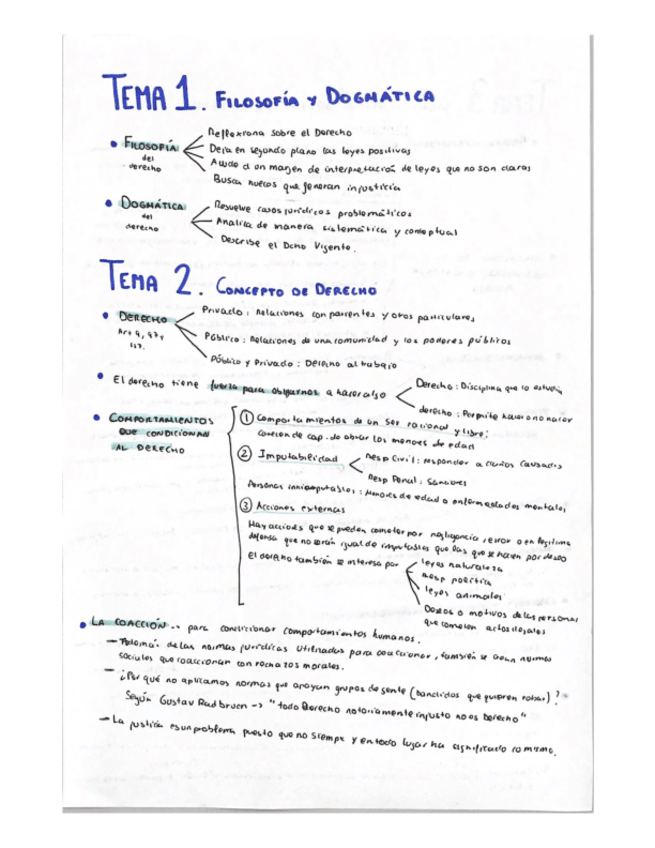 TEMA 1. FILOSOFÍA Y DOGMÁTICA
• FILOSOFÍA del derecho
Reflexiona sobre el Derecho
Deja en segundo plano las leyes positivas
Alude a un margen de interpretación de leyes que no son claras
Busca nuevos que generan injusticia
• DOGMÁTICA del derecho
Resuelve casos jurídicos problemáticos
Analiza de manera sistemática y conceptual
Describe el Dcho Vigente.
TEMA 2. CONCEPTO DE DERECHO
• DERECHO
Privado: Relaciones con parientes y otros particulares
Público: Relaciones de una comunidad y los poderes públicos
Público y Privado: Derecho al trabajo
• El derecho tiene fuerza para obligarnos a hacer algo
Derecho: Disciplina que lo estudia
derecho: Permite hacer o no hacer
• COMPORTAMIENTOS QUE CONDICIONAN AL DERECHO
① Comportamientos de un ser racional y libre:
carecen de cap. de obrar los menores de edad
② Imputabilidad
Resp Civil: responder a daños causados
Resp Penal: Sanciones
Personas inimputables: Menores de edad o enfermedades mentales
③ Acciones externas
Hay acciones que se pueden cometer por negligencia, error o en legítima
defensa que no serán igual de imputables que las que se hacen por deseo
El derecho también se interesa por
leyes naturaleza
Resp política
leyes animales
Deseos o motivos de las personas
que cometen actos ilegales
• LA COACCIÓN -> para condicionar comportamientos humanos.
— Además de las normas jurídicas utilizadas para coaccionar, también se crean normas
sociales que coaccionan con rechazos morales.
— ¿Por qué no aplicamos normas que apoyan grupos de gente (bandidos que quieren robar)?
Según Gustav Radbruch -> "todo Derecho notoriamente injusto no es Derecho"
— La justicia es un problema puesto que no siempre y en todo lugar ha significado lo mismo.